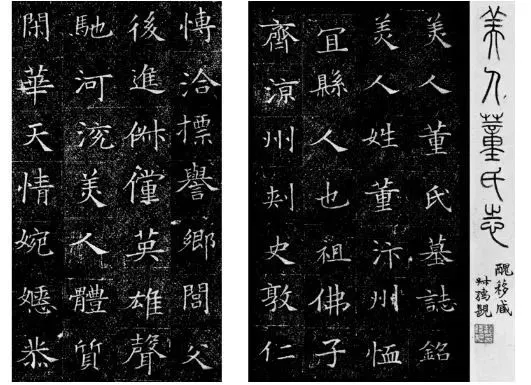 美人董氏志
美人董氏墓誌銘
美人姓董汴州恤
冝縣人也祖佛子
齊涼州刾史敦仁
愽洽摽譽鄉閭父
後進俶儻英雄聲
馳河沇美人體質
閑華天情婉嫕恭